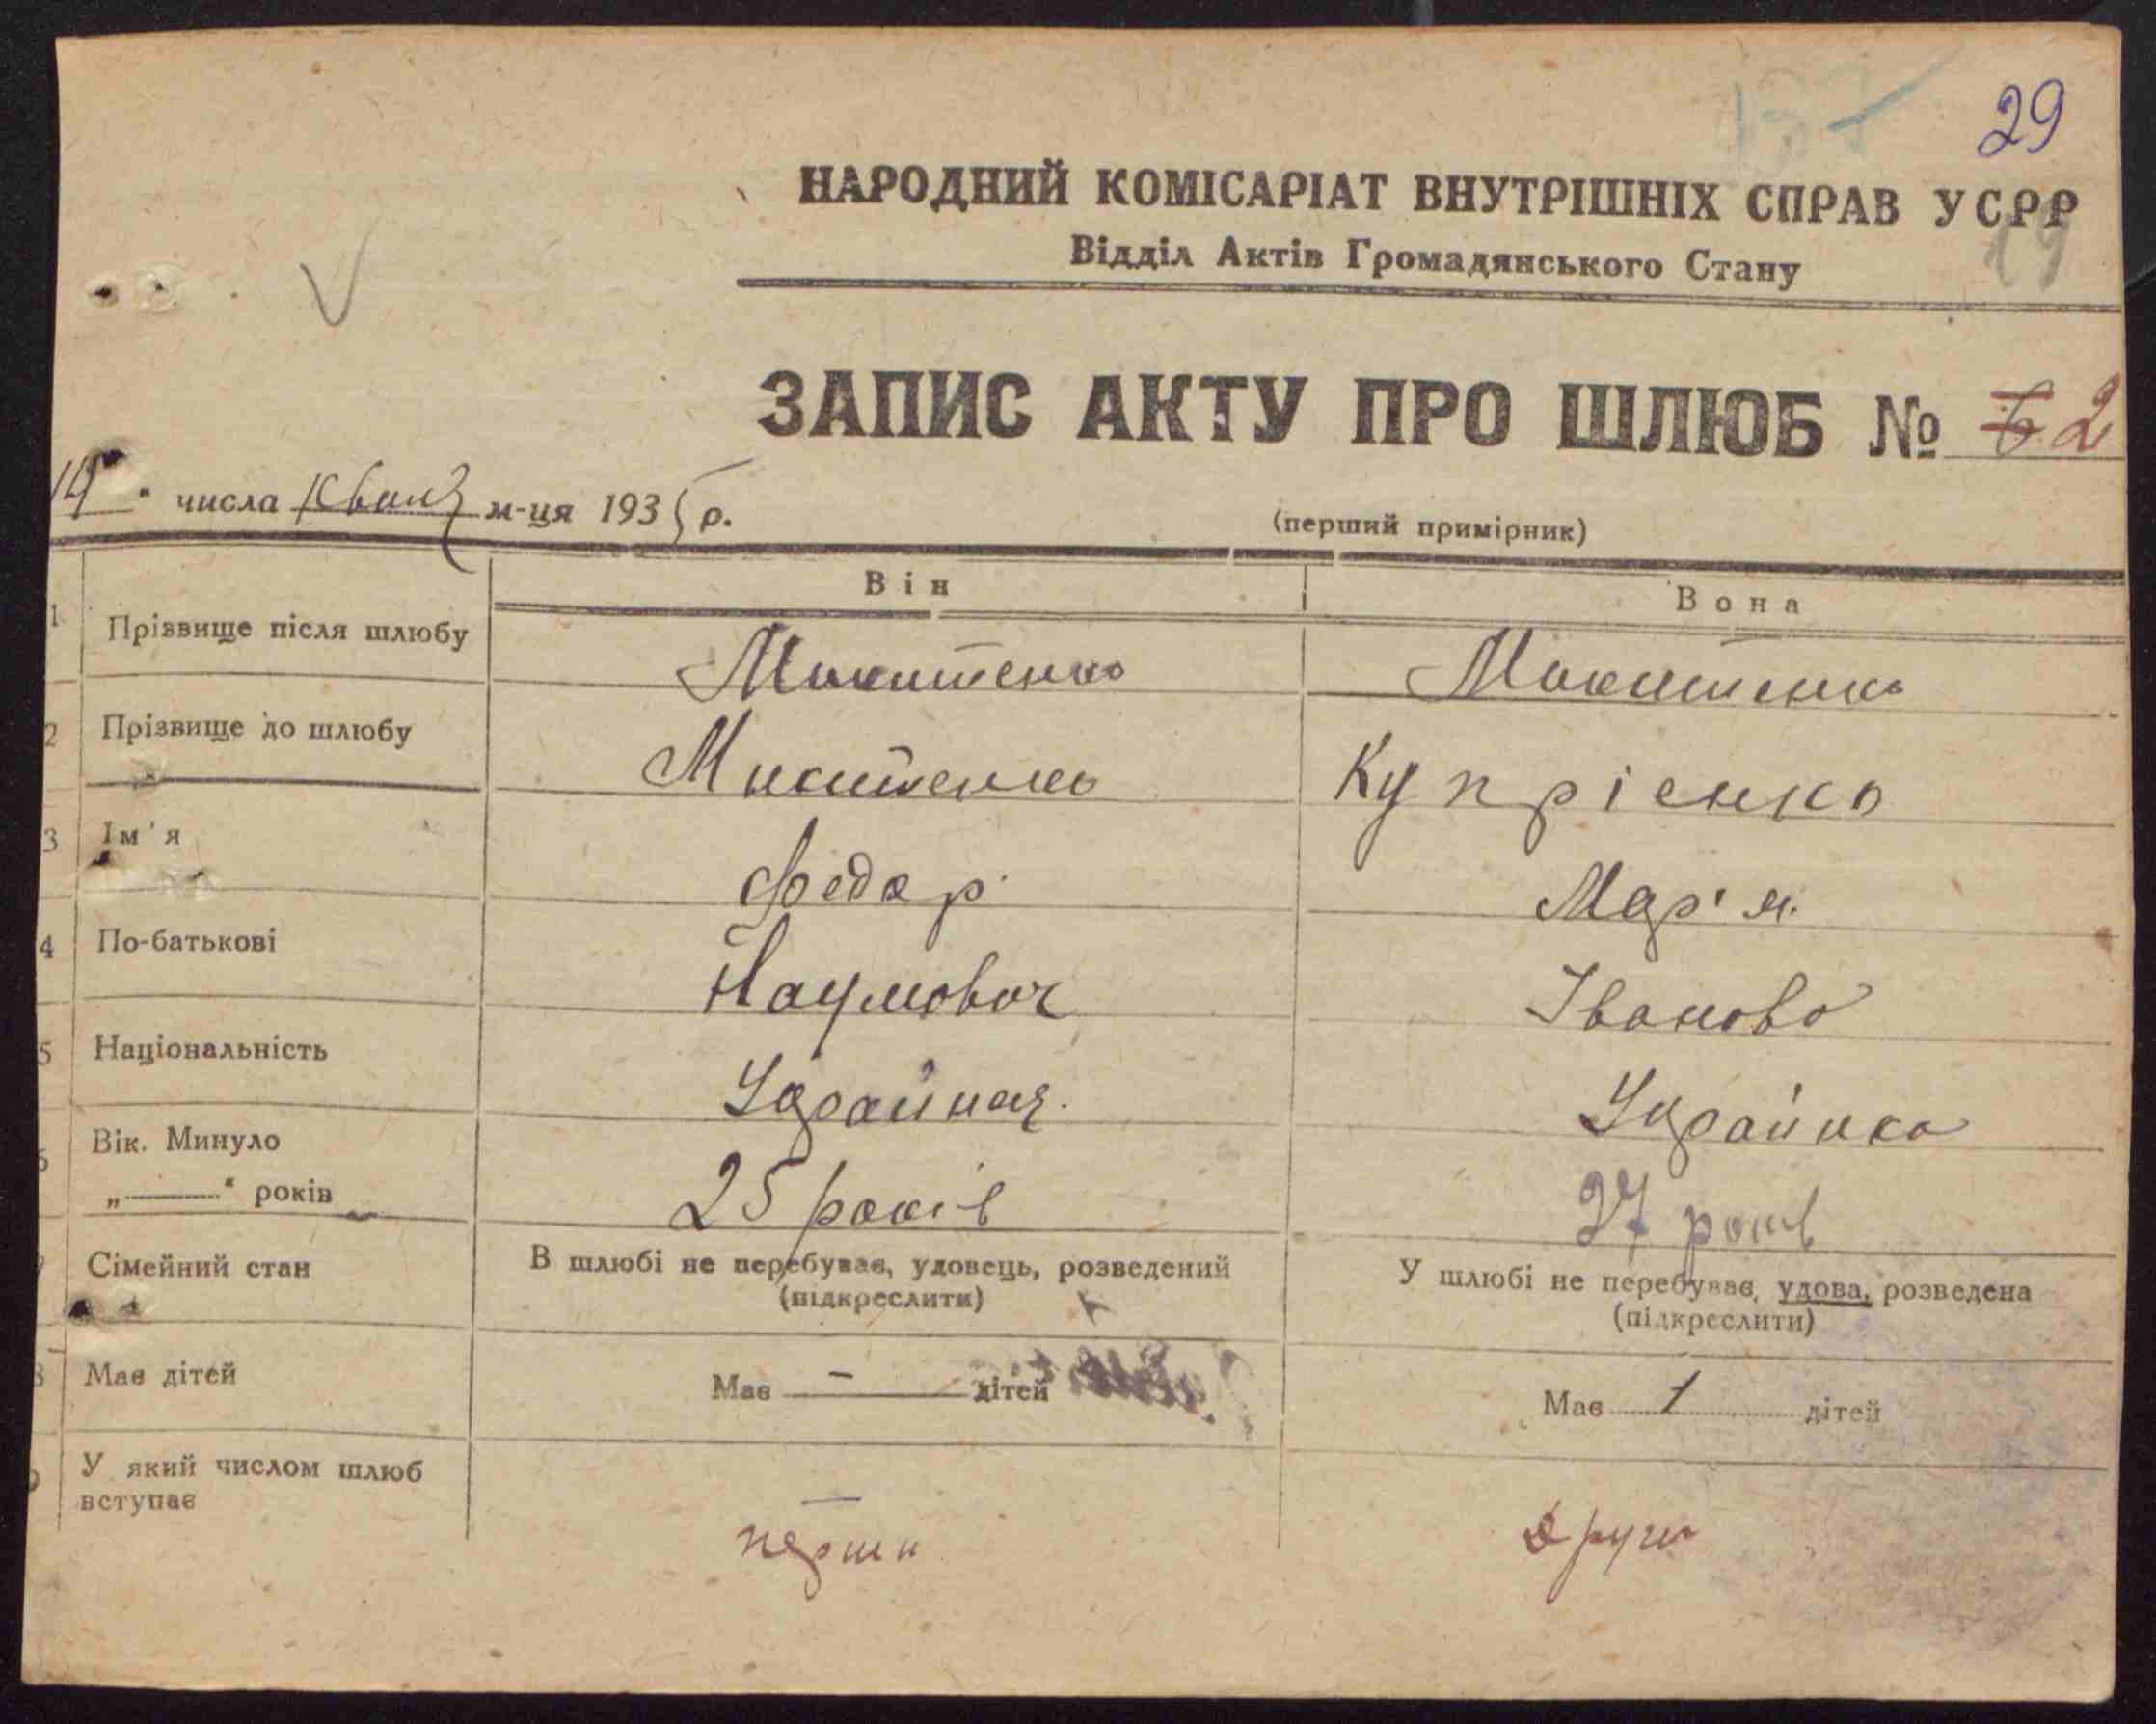 29
НАРОДНИЙ КОМІСАРІАТ ВНУТРІШНІХ СПРАВ УСРР
Відділ Актів Громадянського Стану
19
ЗАПИС АКТУ ПРО ШЛЮБ № 2
14 " числа м-ця 1935 р.
(перший примірник)
Він Вона
1 Прізвище після шлюбу Микитенко Микитенко
2 Прізвище до шлюбу Микитенко Купрієнко
3 Ім'я Федор Мар'я
4 По-батькові Наумович Іванова
5 Національність Українец. Українка
6 Вік. Минуло
„ “ років 25 років 27 років
7 Сімейний стан В шлюбі не перебуває, удовець, розведений У шлюбі не перебуває, удова, розведена
(підкреслити) (підкреслити)
8 Має дітей Має — дітей Має 1 дітей
9 У який числом шлюб
вступає
перши други